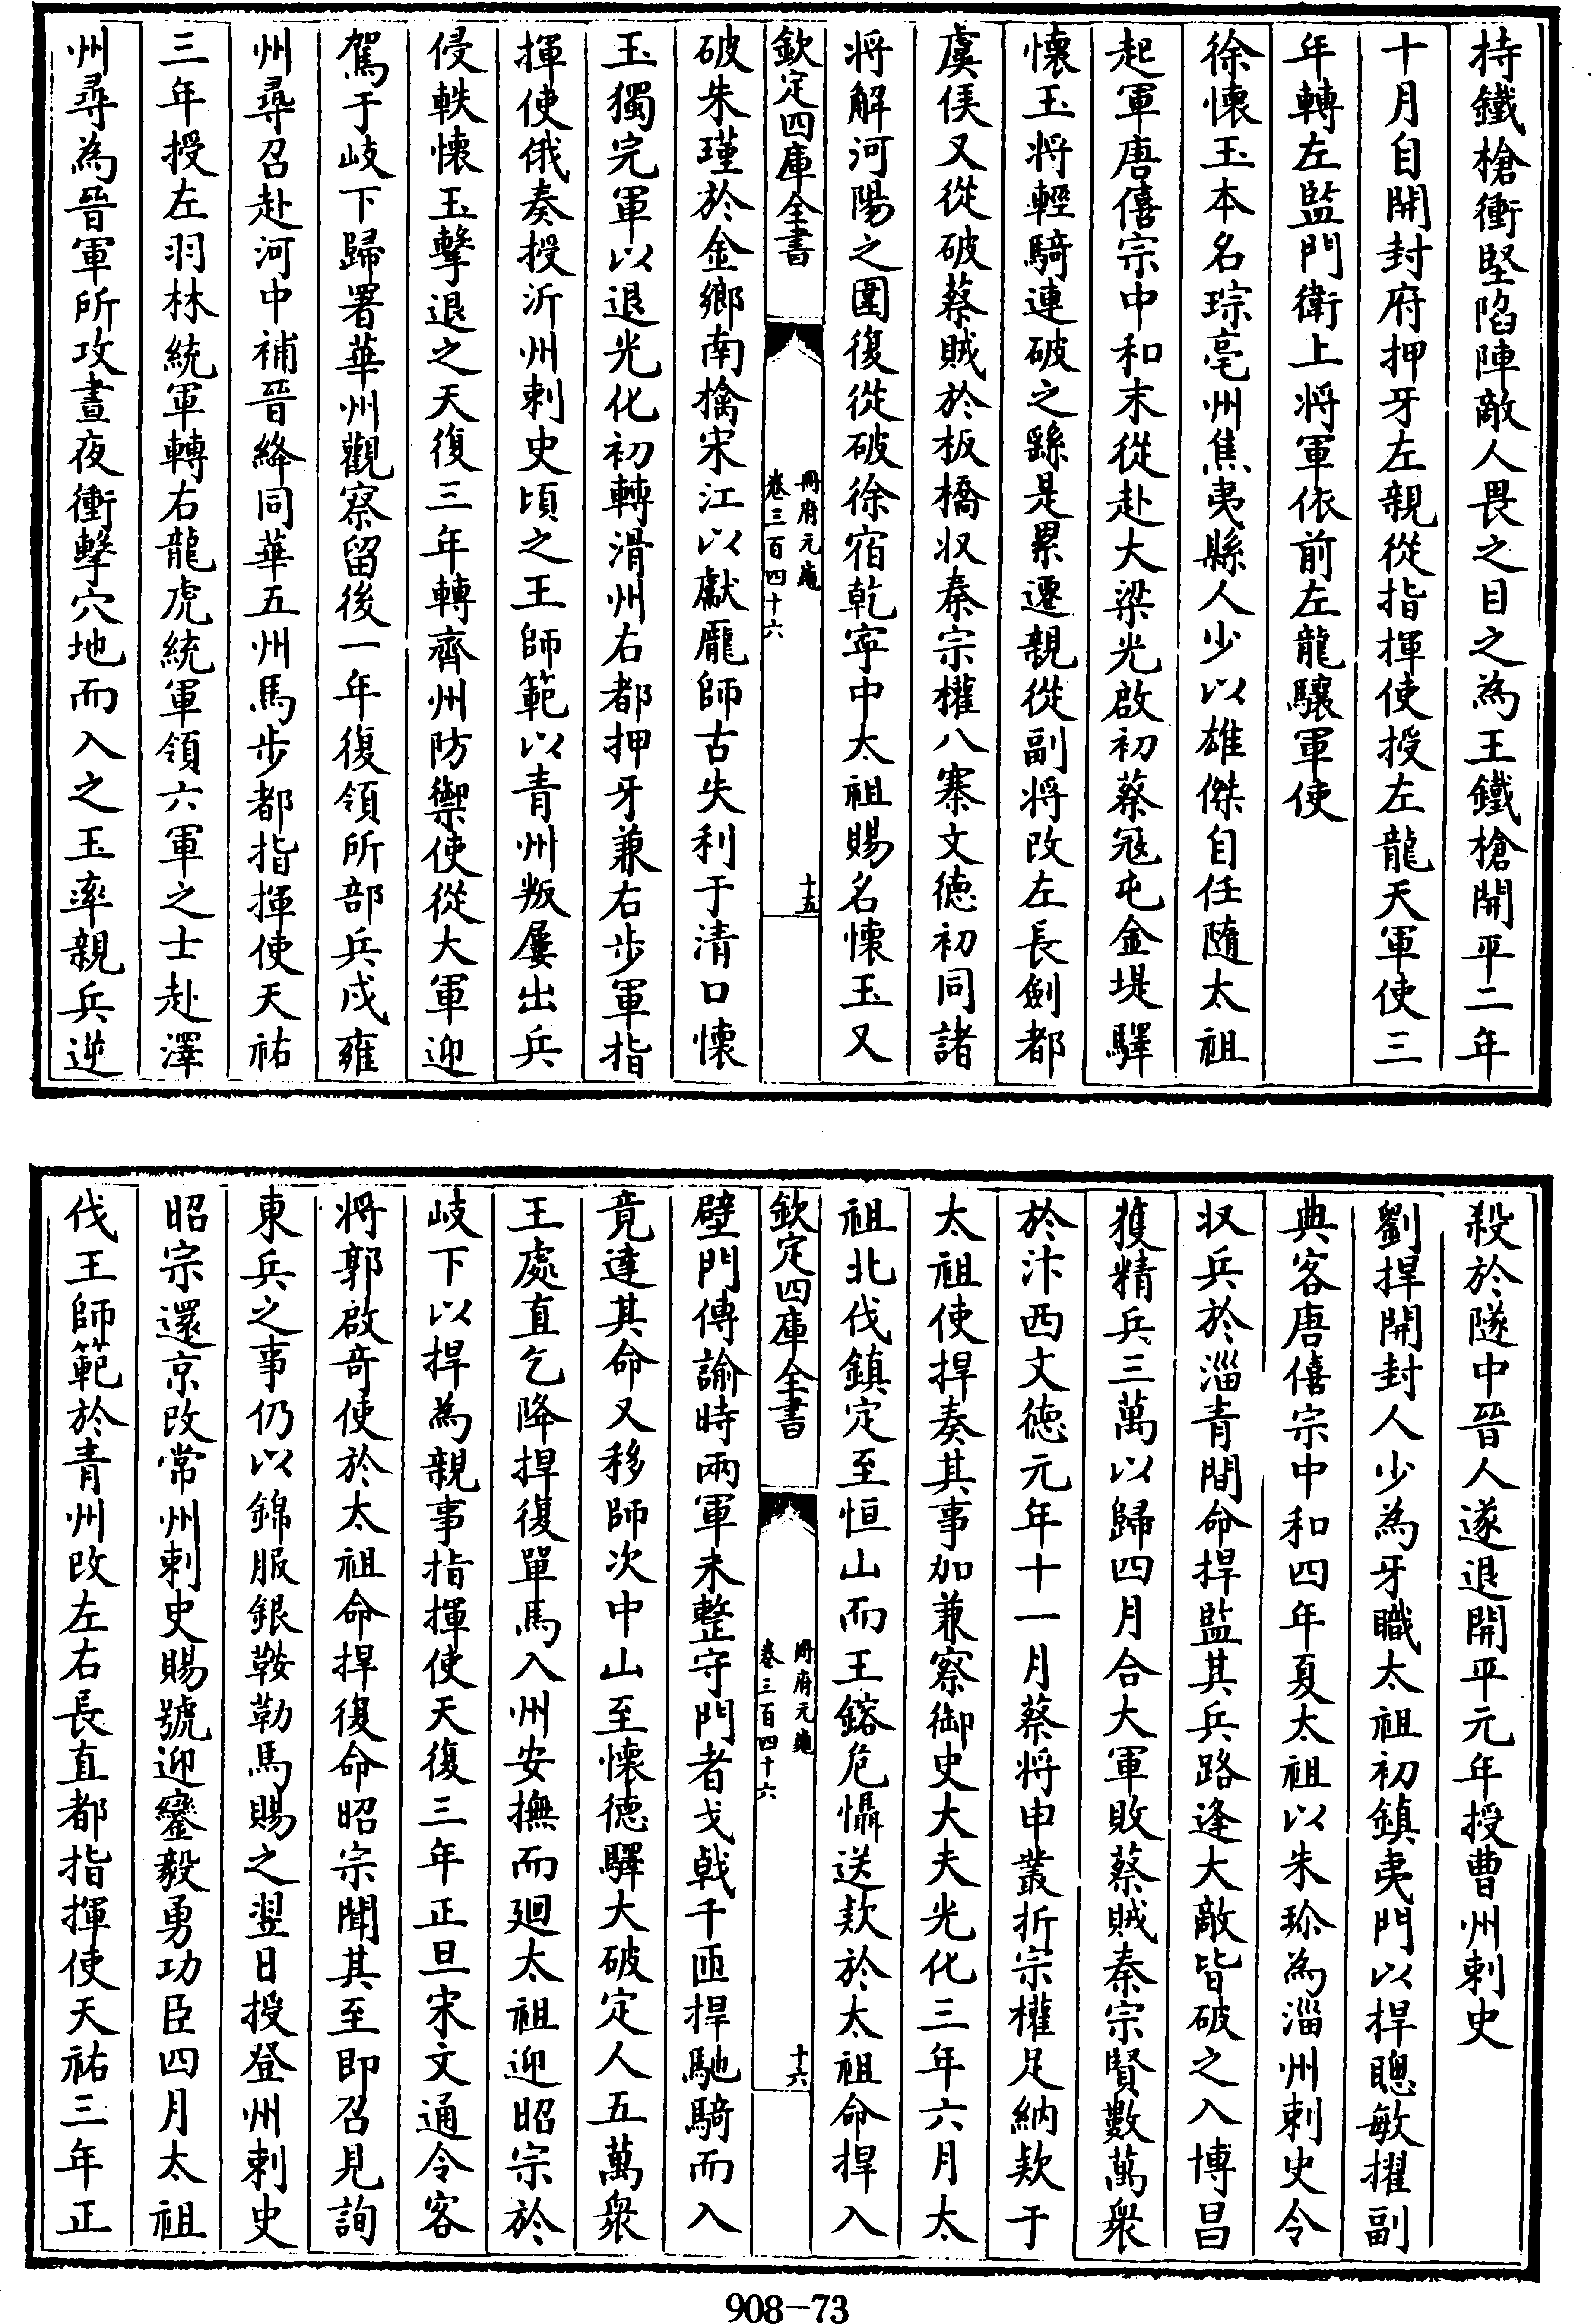 持鐵槍衝堅陷陣敵人畏之目之為王鐵槍開平二年
十月自開封府押牙左親從指揮使授左龍天軍使三
年轉左監門衛上將軍依前左龍驤軍使
徐懷玉本名琮亳州焦夷縣人少以雄傑自任隨太祖
起軍唐僖宗中和末從赴大梁光啟初蔡冦屯金堤驛
懷玉將輕騎連破之繇是累遷親從副將改左長劍都
虞候又從破蔡賊於板橋收秦宗權八寨文徳初同諸
將解河陽之圍復從破徐宿乾寧中太祖賜名懷玉又
欽定四庫全書
冊府元龜
卷三百四十六
十五
破朱瑾於金鄉南擒宋江以獻龎師古失利于清口懷
玉獨完軍以退光化初轉滑州右都押牙兼右步軍指
揮使俄奏授沂州刺史頃之王師範以青州叛屢出兵
侵軼懷玉擊退之天復三年轉齊州防禦使從大軍迎
駕于岐下歸署華州觀察留後一年復領所部兵戍雍
州尋召赴河中補晉絳同華五州馬步都指揮使天祐
三年授左羽林統軍轉右龍虎統軍領六軍之士赴澤
州尋為晉軍所攻晝夜衝擊穴地而入之玉率親兵逆
殺於隧中晉人遂退開平元年授曹州刺史
劉捍開封人少為牙職太祖初鎮夷門以捍聰敏擢副
典客唐僖宗中和四年夏太祖以朱珍為淄州刺史令
收兵於淄青間命捍監其兵路逢大敵皆破之入博昌
獲精兵三萬以歸四月合大軍敗蔡賊秦宗賢數萬衆
於汴西文徳元年十一月蔡將申叢折宗權足納欵于
太祖使捍奏其事加兼察御史大夫光化三年六月太
祖北伐鎮定至恒山而王鎔危懾送欵於太祖命捍入
欽定四庫全書
冊府元龜
卷三百四十六
十六
壁門傳諭時兩軍未整守門者戈戟千匝捍馳騎而入
竟達其命又移師次中山至懷德驛大破定人五萬衆
王處直乞降捍復單馬入州安撫而廻太祖迎昭宗於
岐下以捍為親事指揮使天復三年正旦宋文通令客
將郭啟竒使於太祖命捍復命昭宗聞其至即召見詢
東兵之事仍以錦服銀鞍勒馬賜之翌日授登州刺史
昭宗還京改常州刺史賜號迎鑾毅勇功臣四月太祖
伐王師範於青州改左右長直都指揮使天祐三年正
908-73